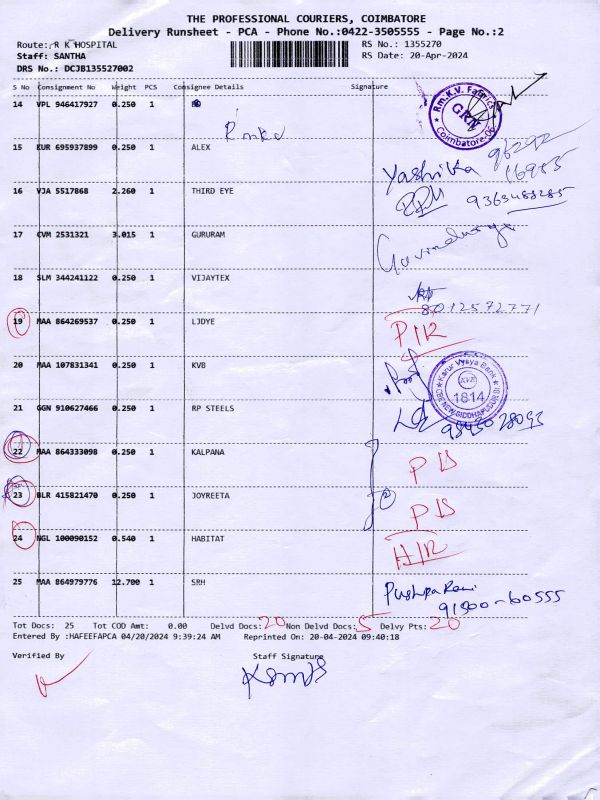 THE PROFESSIONAL COURIERS, COIMBATORE
Delivery Runsheet - PCA - Phone No.:0422-3505555 - Page No.:2
Route: R K HOSPITAL RS No.: 1355270
Staff: SANTHA RS Date: 20-Apr-2024
DRS No.: DCJB135527002
S No Consignment No Weight PCS Consignee Details Signature
14 VPL 946417927 0.250 1
R.m.K.V. Fabrics
GRN
Coimbatore
15 KUR 695937899 0.250 1 ALEX
Yashika
16 VJA 5517868 2.260 1 THIRD EYE
9363488285
17 CVM 2531321 3.015 1 GURURAM
18 SLM 344241122 0.250 1 VIJAYTEX
8012572771
19 MAA 864269537 0.250 1 LJDYE P/R
20 MAA 107831341 0.250 1 KVB
Karur Vysya Bank
KVB
1814
21 GGN 910627466 0.250 1 RP STEELS
22 MAA 864333098 0.250 1 KALPANA
23 BLR 415821470 0.250 1 JOYREETA
24 NGL 100090152 0.540 1 HABITAT
25 MAA 864979776 12.700 1 SRH Pushpa Rani
91500-60555
Tot Docs: 25 Tot COD Amt: 0.00 Delvd Docs: 20 Non Delvd Docs: 5 Delvy Pts: 20
Entered By :HAFEEFAPCA 04/20/2024 9:39:24 AM Reprinted On: 20-04-2024 09:40:18
Verified By Staff Signature